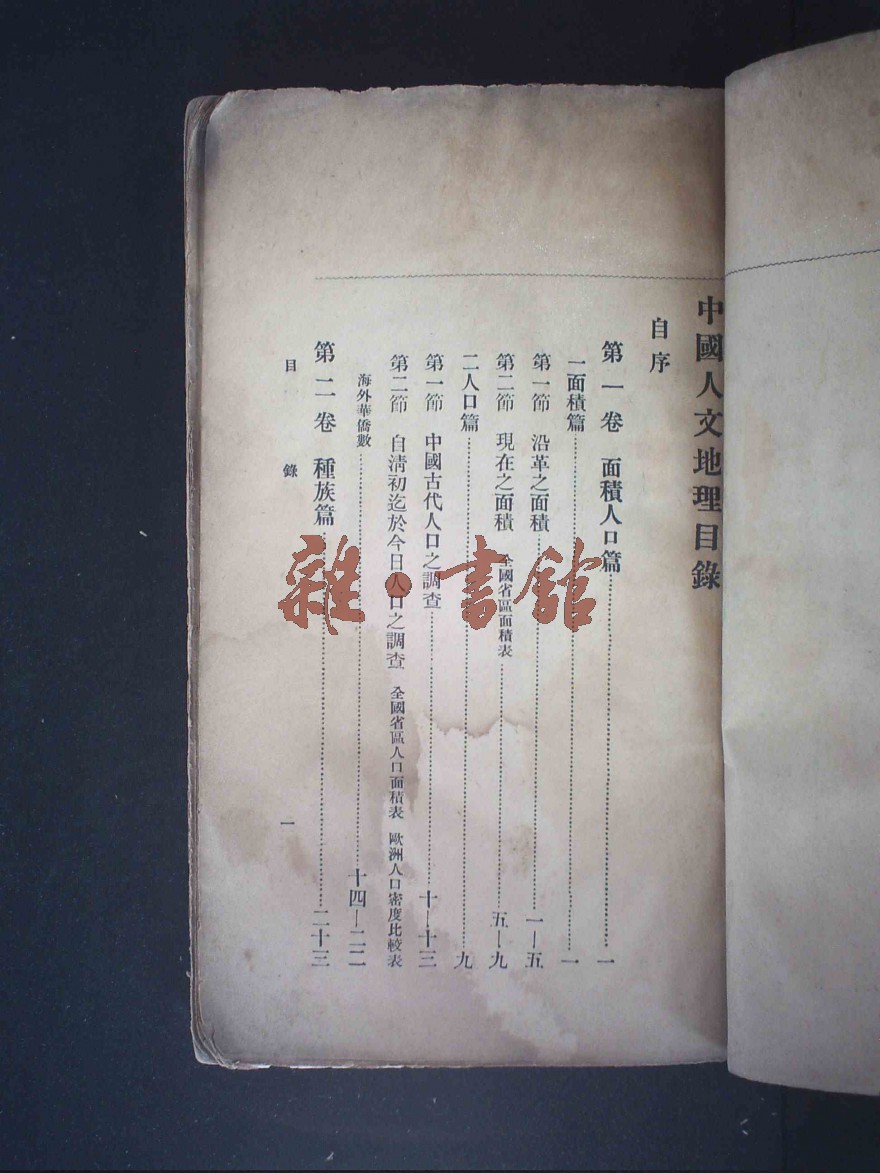 中國人文地理目錄
自序
第一卷　面積人口篇……一
一面積篇……一
第一節　沿革之面積……一—五
第二節　現在之面積　全國省區面積表……五—九
二人口篇……九
第一節　中國古代人口之調查……十—十三
第二節　自清初迄於今日人口之調查　全國省區人口面積表　歐洲人口密度比較表
海外華僑數……十四—二二
第二卷　種族篇……二十三
目錄　一
雜·書館